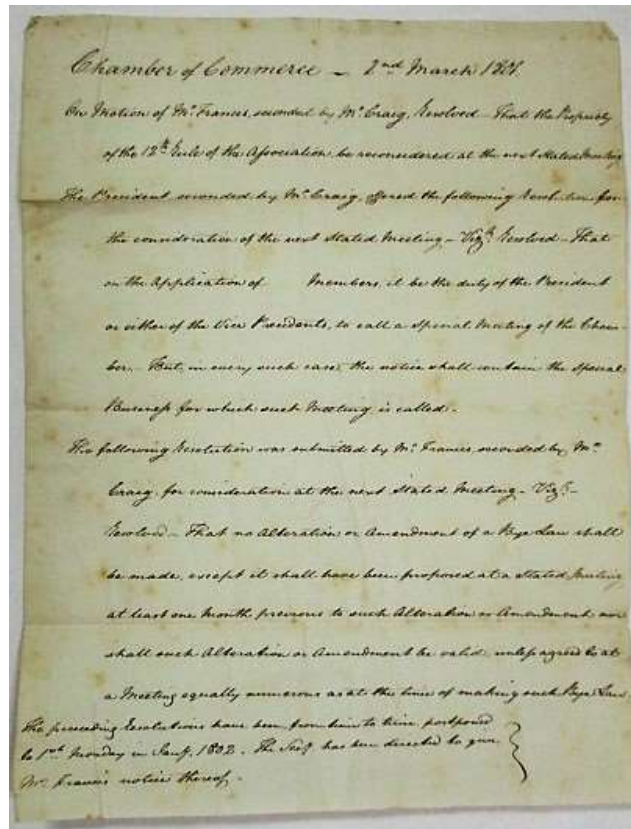 Chamber of Commerce – 2nd March 1801.
On Motion of Mr. Francis, seconded by Mr. Craig, Resolved – That the Propriety
of the 12th Rule of the Association, be reconsidered at the next Stated Meeting
The President seconded by Mr. Craig, offered the following Resolution for
the consideration of the next Stated Meeting – Vizt. Resolved – That
on the Application of Members, it be the duty of the President
or either of the Vice Presidents, to call a Special Meeting of the Cham-
ber. – But, in every such case, the notice shall contain the special
Business for which such Meeting is called. –
The following Resolution was submitted by Mr. Francis, seconded by Mr.
Craig, for consideration at the next Stated Meeting – Vizt. –
Resolved – That no Alteration or Amendment of a Bye Law shall
be made, except it shall have been proposed at a Stated Meeting
at least one Month previous to such Alteration or Amendment nor
shall such Alteration or Amendment be valid, unless agreed to at
a Meeting equally numerous as at the time of making such Bye Law
The preceding Resolutions have been from time to time postponed
to 1st Monday in Jany. 1802. The Secy. has been directed to give
Mr. Francis notice thereof. –